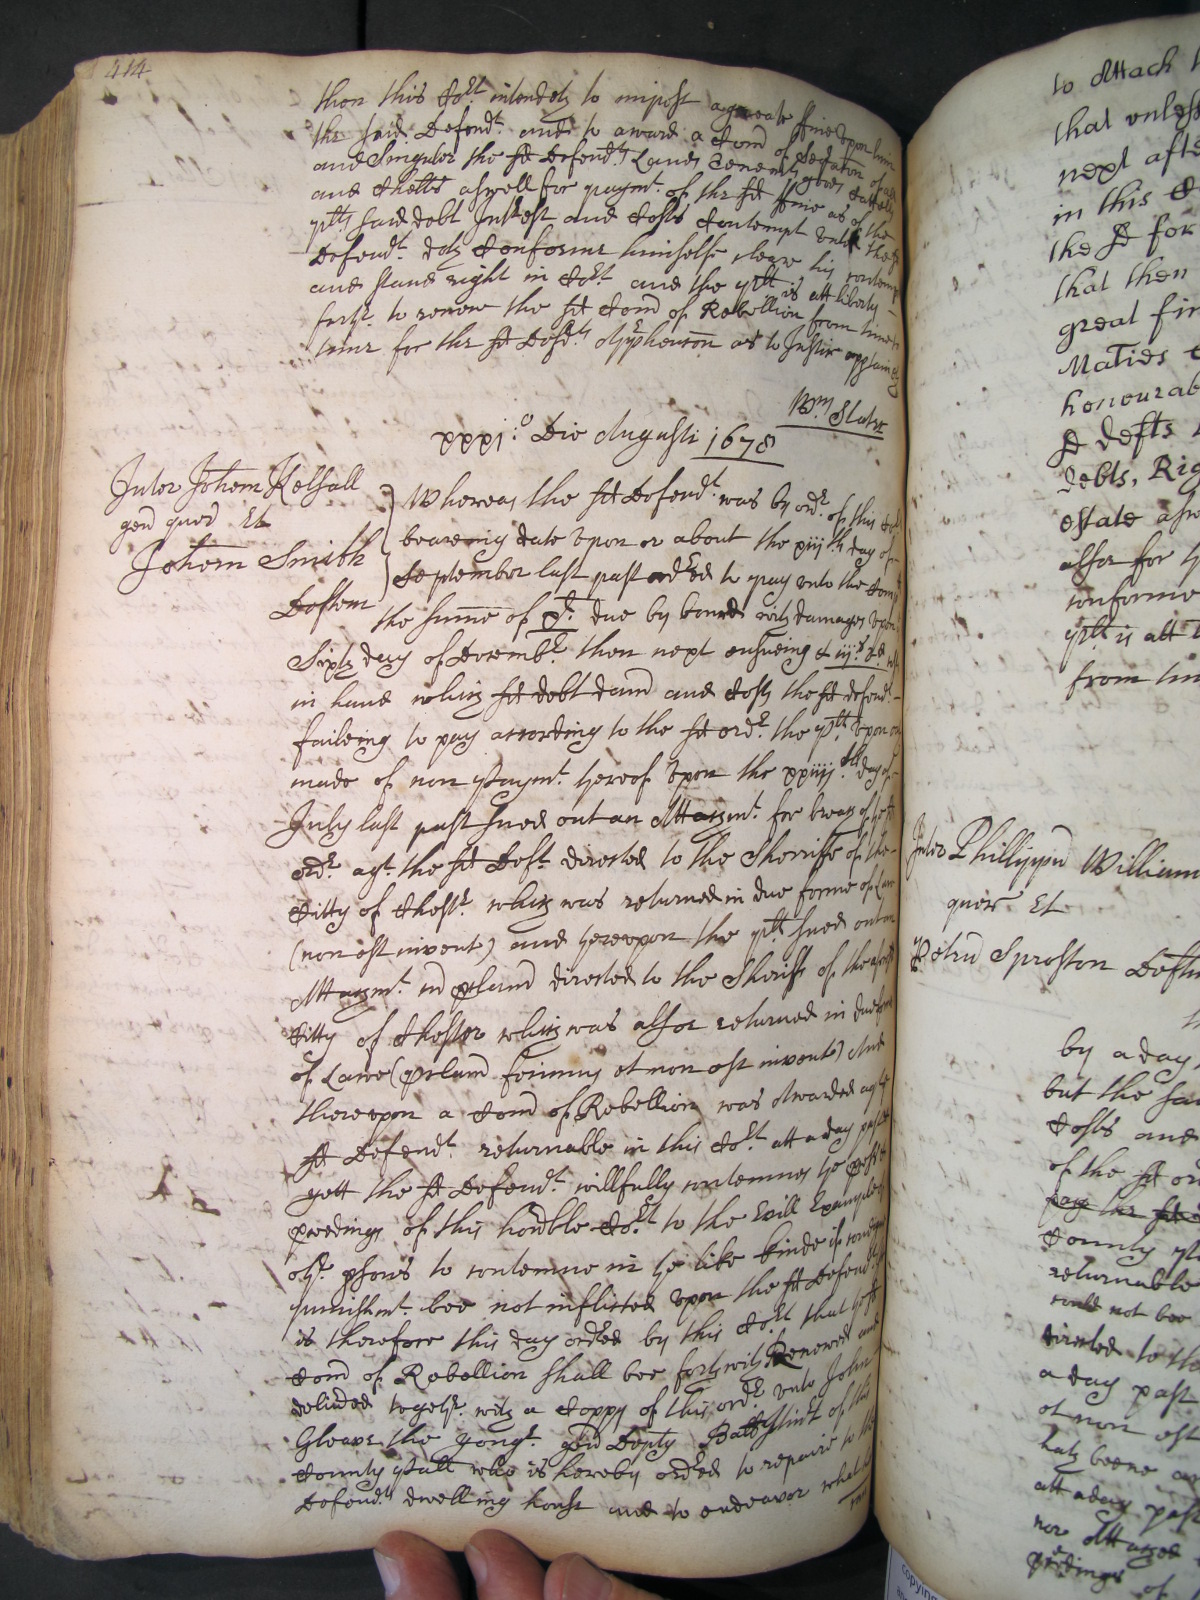 414
then this Cort intendeth to impose a greate ffine vpon him
the said Defendt and to award a Comd of Seqtacon of all
and Singuler the sd Defendts Lands Tenemts goods Cattells
and Chells aswell for paymt of the sd ffine as of the
pltts said debt Intrest and Costs Contempt vntill the sd
Defendt doth Conforme himselfe cleare his contempt
and stand right in Cort and the pltt is att liberty
furthr to renew the sd Comd of Rebellion from time to
time for the sd Defdts Apphencon as to Justice apptaineth
Wm Slater
xxxj:o Die Augusti 1678
Inter Johem Kelsall
gen quer Et
Johem Smith
Deftem
Whereas the sd Defendt was by ordr of this Cort
beareing date vpon or about the xiijth day of
September last past ordred to pay vnto the Complt
the sume of due by bond with damages vpon
Sixth day of Decembr then next ensueing &
in hand which sd debt dam and Costs the sd defendt
faileing to pay according to the sd ordr the pltt vpon
made of non paymt hereof vpon the xxiiijth day of
July last past sued out an Attachmt for breach of the sd
ordr agt the sd Deft directed to the Sherriffe of the
Citty of Chestr which was returned in due forme of Law
(non est invent) and herevpon the pltt sued out an
Attachmt directed to the Sheriffs of the aforesd
Citty of Chester which was alsoe returned in due forme
of Lawe ( et non est invent) And
therevpon a Comd of Rebellion was Awarded agt the
sd Defendt returnable in this Cort att a day past
yett the sd Defendt willfully contemnes the
pceedings of this honble Cort to the Evill Example of
othr psons to contemne in the like kinde if condigne
punishmt bee not inflicted vpon the sd Defendt
is therefore this day ordred by this Cort that the sd
Comd of Rebellion shall bee forthwith Renewed and
delivred togethr with a Coppy of this ordr vnto John
Gleave the yongr gen Depty of the
County Pallt who is hereby ordred to repaire to the
Defendts dwelling house and to endeavor what he
can
to Attach
that unless
next afte
in this
the sd for
that then
great fin
Maties
honourab
sd defts
debts, Rig
estate asw
alsoe for
conforme
pltt is att
from tim
Inter Phillippu William
quer Et
Petru Sproston Deftem
by a day
but the sai
Costs and
of the sd or
pay the sd
County
returnable
could not bee
directed to the
a day past
et non est
hath beene
att a day past
nor Attached
pceedings of